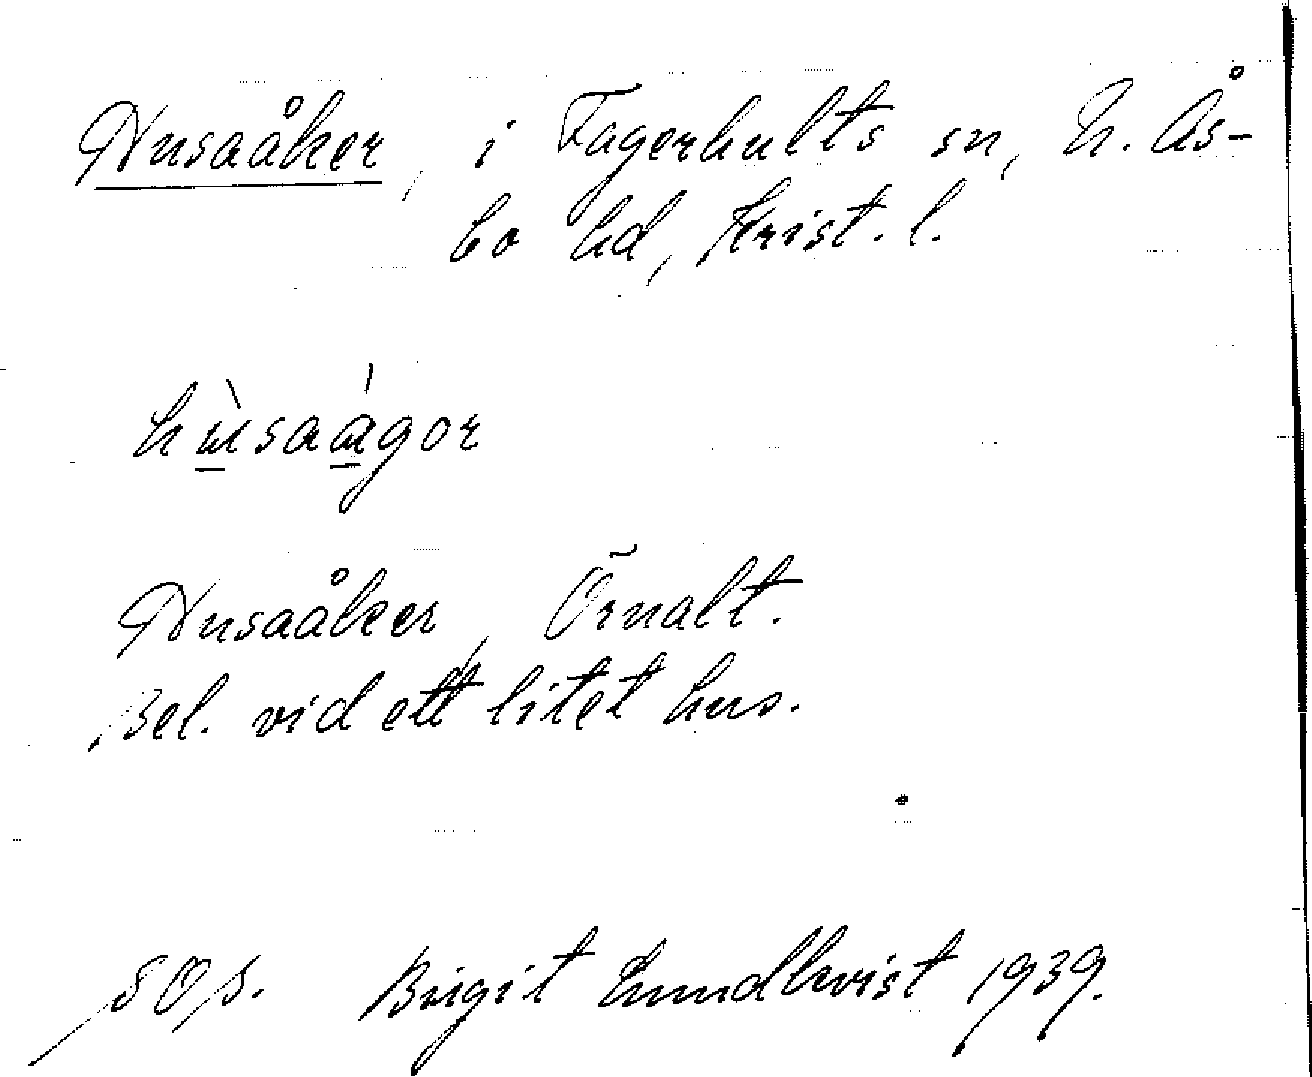 Husaåker, i Fagerhults sn, N. Ås-
bo hd, Krist. l.
hùsaàgor
Husaåker, Örnalt.
Bel. vid ett litet hus.
Birgit Lundkvist 1939.